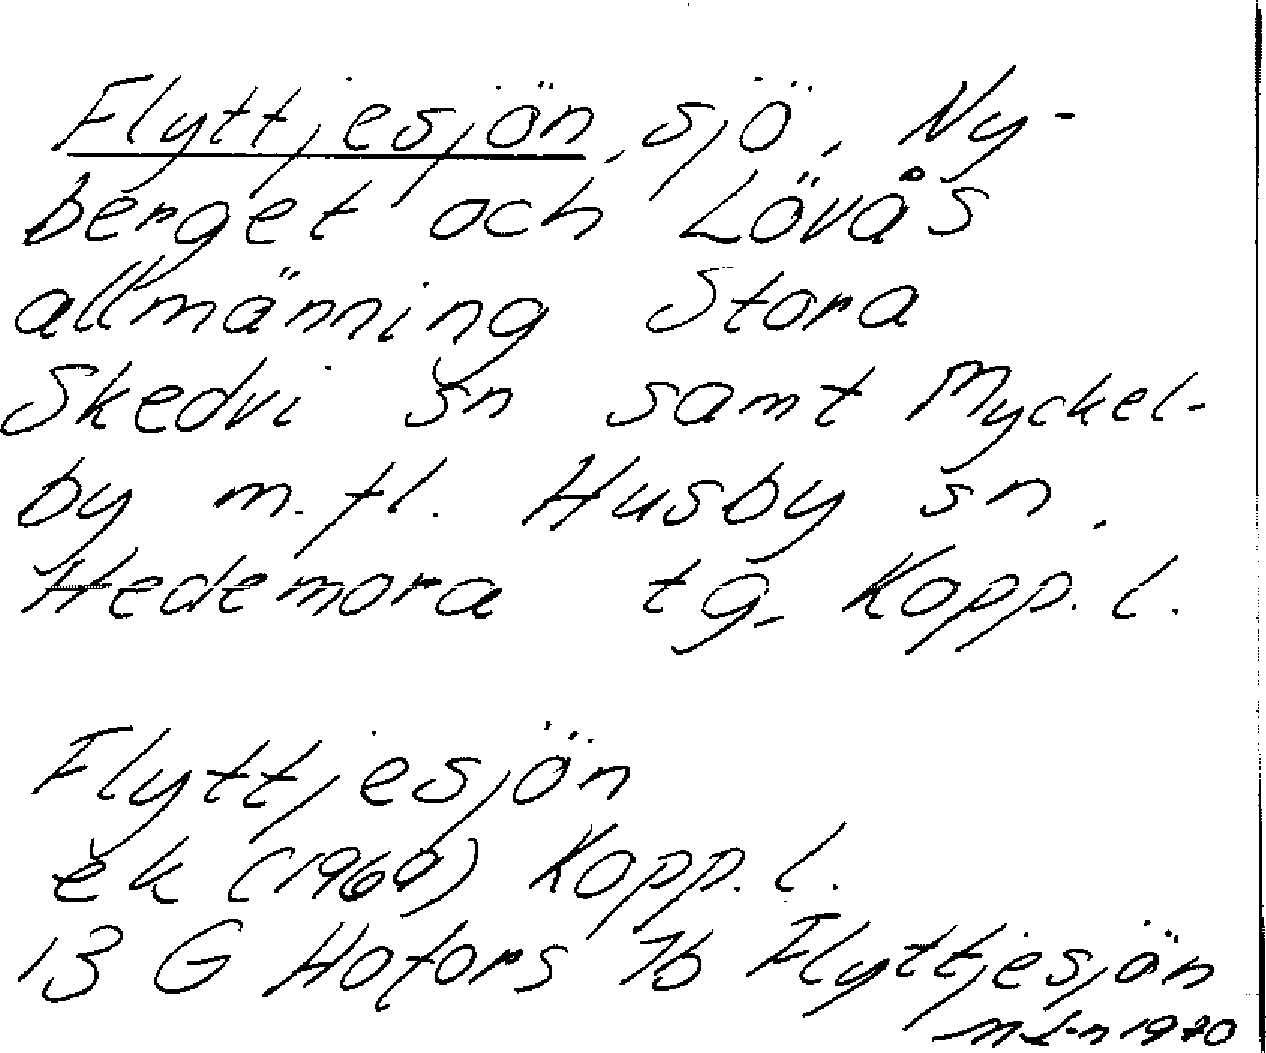 Flyttjesjön, sjö, Ny-
berget och Lövås
allmänning Stora
Skedvi sn samt Myckel-
by m.fl. Husby sn,
Hedemora tg, Kopp. l.
Flyttjesjön
ek (1969) Kopp. l.
13 G Hofors 7b Flyttjesjön
1970